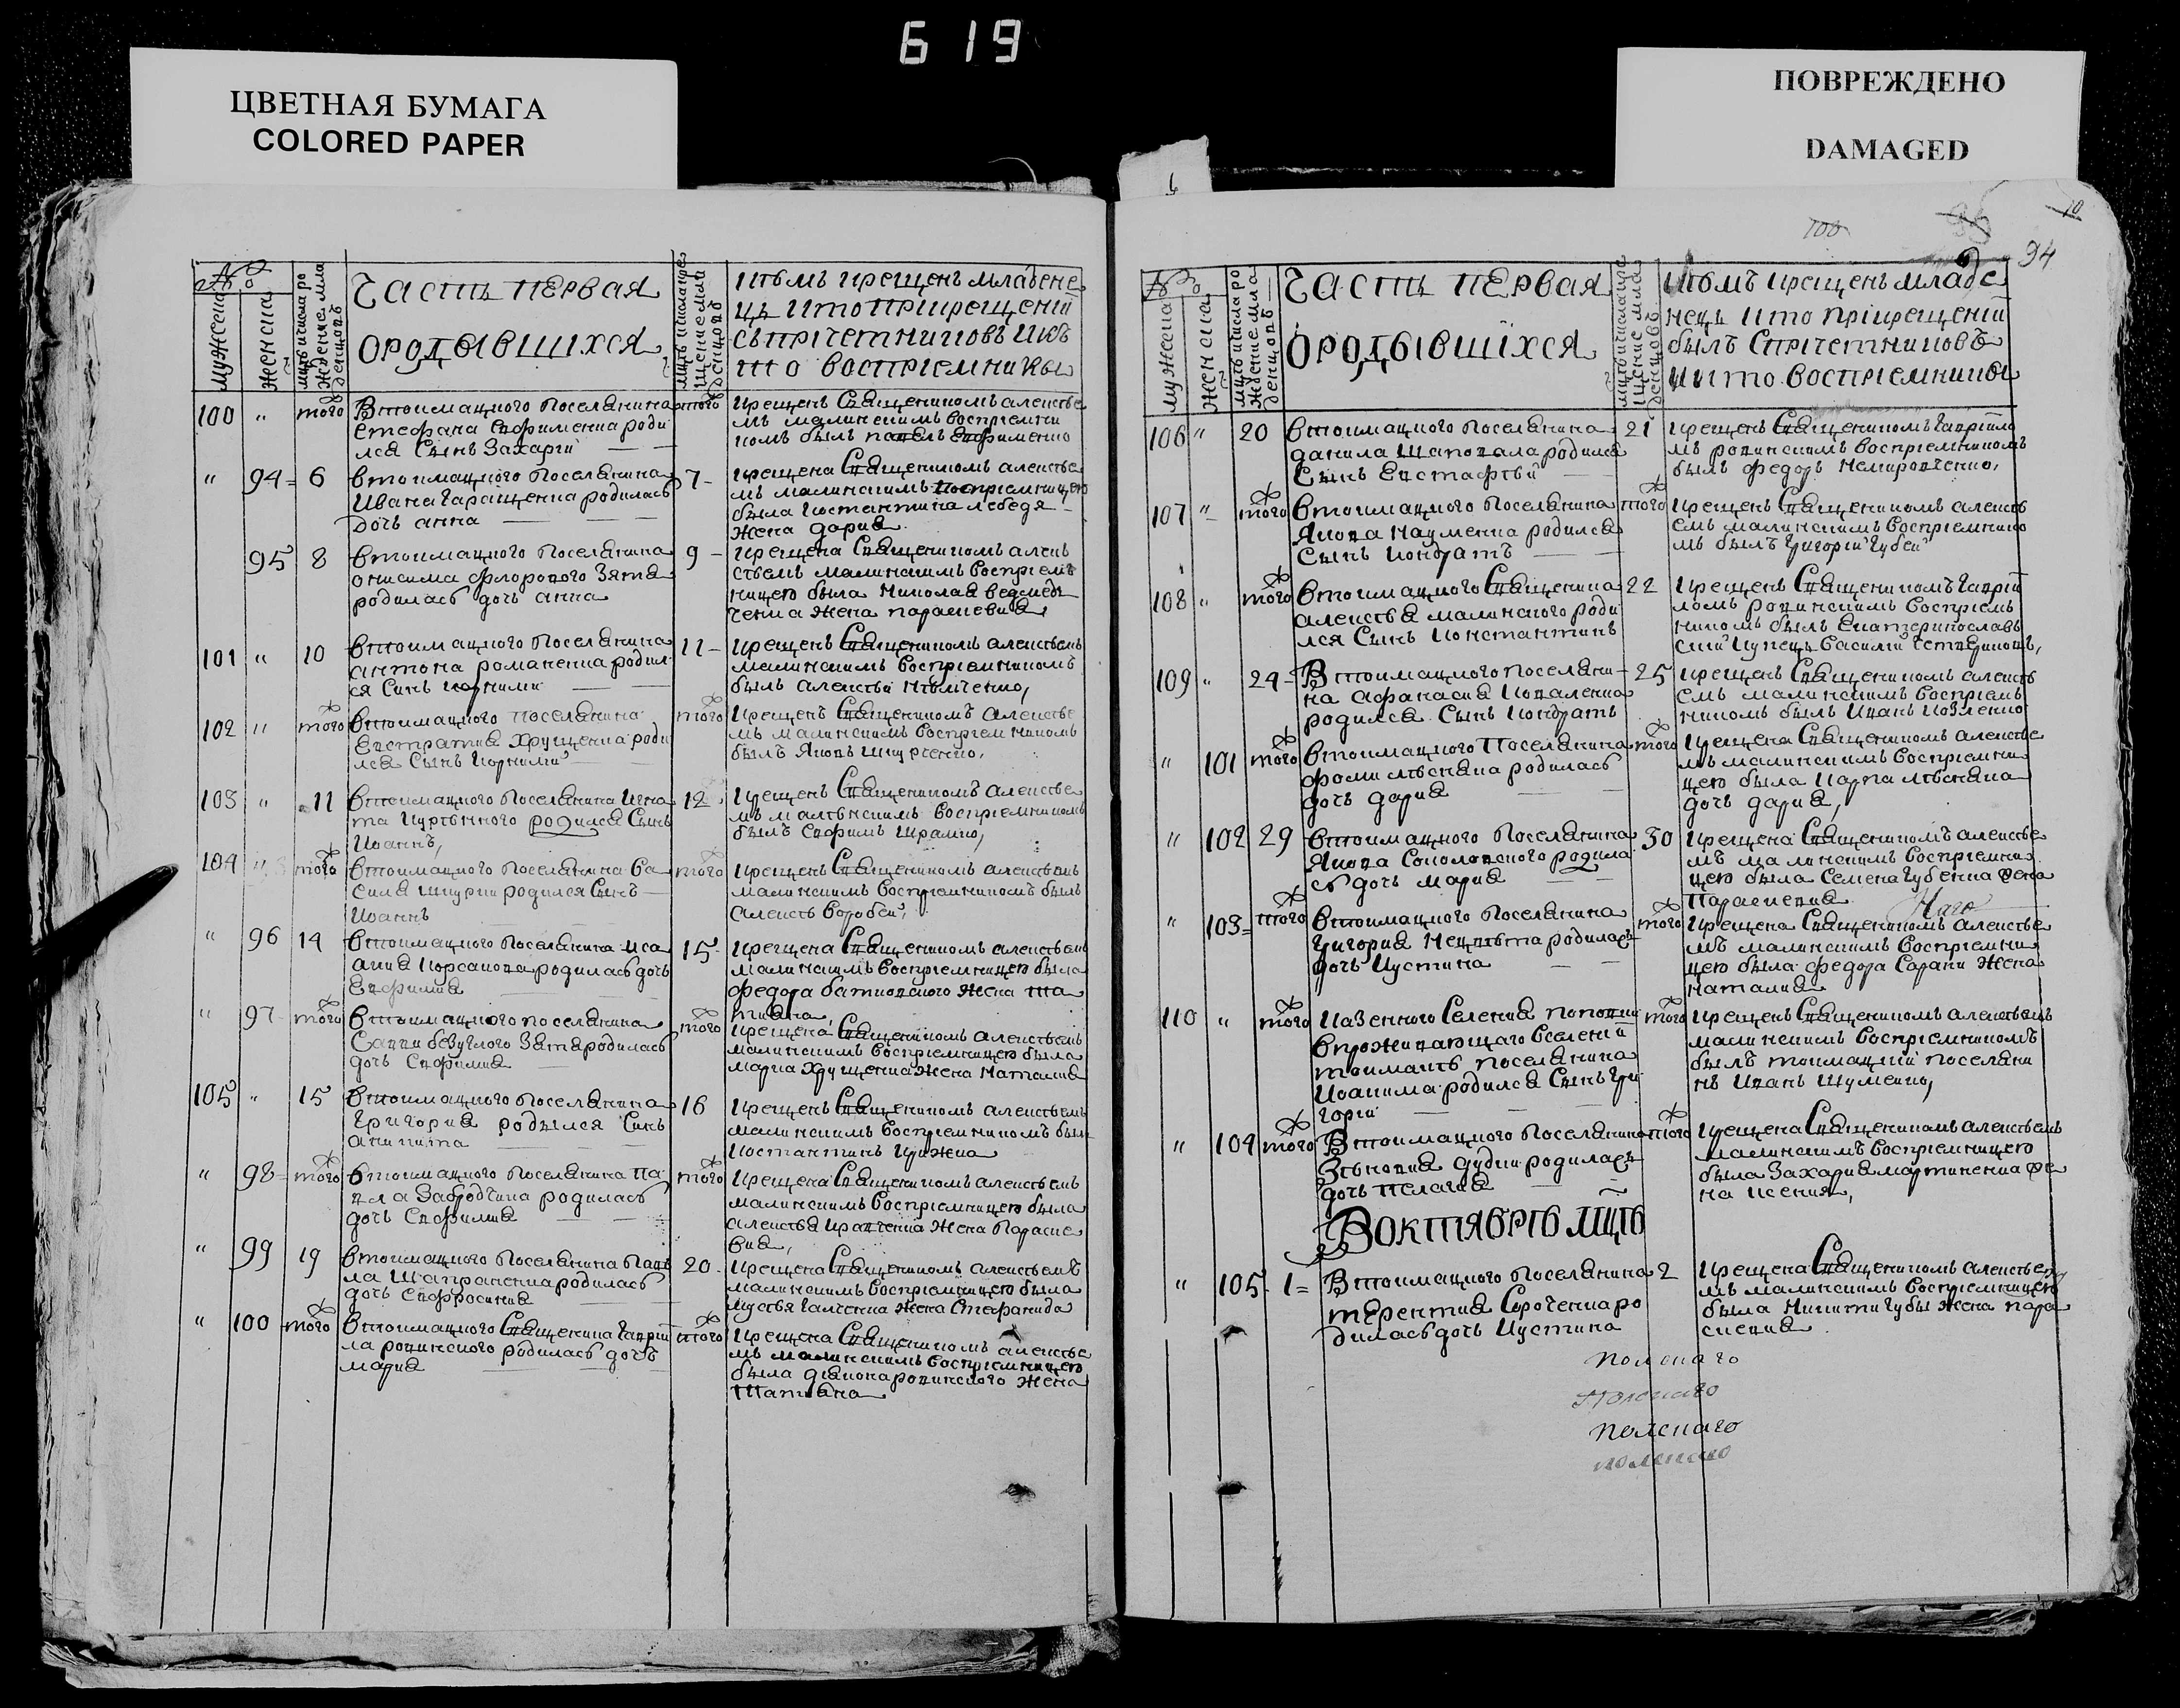 619
ЦВЕТНАЯ БУМАГА
COLORED PAPER
ПОВРЕЖДЕНО
DAMAGED
100
94
№
мужеска
женска
Часть первая
о родывшихся
Кѣмъ крещенъ младене
цъ и кто при крещенiи
съ прiчетниковъ и къ
то воспрiемники
100 " того
втокмацкого поселянина
стефана Евфименка роди
лся Сынъ Захарiй
того
крещенъ Священикомъ алексѣе
мъ малинскимъ воспрiемни
комъ былъ павелъ Евфименко
" 94 6
втокмацкого поселянина
Ивана Гаращенка родилась
дочь анна
7
крещена Священикомъ алексѣе
мъ малинскимъ воспрiемницею
была Костантина лебедя
жена дария
95 8
втокмацкого поселянина
онисима флорового Зятя
родилась дочь анна
9
крещена Священикомъ алек
сѣемъ малинскимъ воспрiем
ницею была Николая ведмеде
ченка жена параскевия
101 " 10
втокмацкого поселянина
антона романенка родил
ся Синъ корнилий
11
крещенъ Священикомъ алексѣемъ
малинскимъ воспрiемникомъ
былъ алексѣй
102 " того
втокмацкого поселянина
Евстратия Хрущенка роди
лся Сынъ Корнилий
того
крещенъ Священикомъ алексѣе
мъ малинскимъ воспрiемникомъ
былъ Яковъ Шкурченко,
103 " 11
втокмацкого поселянина Игна
та родился Сынъ
Иоаннъ,
12
крещенъ Священикомъ алексѣе
мъ малѣнскимъ воспрiемникомъ
былъ Евфимъ Шрамко,
104 " того
втокмацкого поселянина Ва
силя Шкурки родился Сынъ
Иоаннъ
того
крещенъ Священикомъ алексѣемъ
малинскимъ воспрiемникомъ былъ
алексѣй воробей,
" 96 14
втокмацкого поселянина иса
акия Корсакова родилась дочь
Евфимия
15
крещена Священикомъ алексѣемъ
малинскимъ воспрiемницею была
федора батиовского жена та
тияна,
" 97 того
втокмацкого поселянина
Саввы безуглого Зятя родилась
дочь Евфимия
того
крещена Священикомъ алексѣемъ
малинскимъ воспрiемницею была
марка Хрущенка жена Наталия
105 " 15
втокмацкого поселянина
Григория родылся Синъ
акикита
16
крещенъ Священикомъ алексѣемъ
малинскимъ воспрiемникомъ былъ
Костантинъ Крижка
" 98 того
втокмацкого поселянина Па
вла Забродчика родилась
дочь Евфимия
того
крещена Священикомъ алексѣемъ
малинскимъ воспрiемницею была
алексѣя Кравченка жена Параске
вия,
" 99 19
втокмацкого поселянина Пав
ла Шапраненка родилась
дочь Евфросиния
20
крещена Священикомъ алексѣемъ
малинскимъ воспрiемницею была
Мусѣя Галченка жена Стефанида
" 100 того
втокмацкого Священика Гаврiи
ла ровинского родилась дочь
мария
того
крещена Священикомъ алексѣе
мъ малинскимъ воспрiемницею
была дiякона ровинского жена
Татияна
№
мужеска
женска
Часть первая
о родывшiхся
Кѣмъ крещенъ младе
нецъ и кто прi крещенiй
былъ Спрiчетниковъ
и кто воспрiемники
106 " 20
втокмацкого поселянина
данила Шаповала родился
Сынъ Евстафiй
21
крещенъ Священикомъ Гаврiило
мъ ровинскимъ воспрiемникомъ
былъ федоръ Немировченко,
107 " того
втокмацкого поселянина
Якова Науменка родился
Сынъ Кондратъ
того
крещенъ Священикомъ алексѣ
емъ малинскимъ воспрiемнико
мъ былъ Григорiй Губей
108 " того
втокмацкого Священика
алексѣя малинского роди
лся Сынъ Константинъ
22
крещенъ Священикомъ Гаврiи
ломъ ровинскимъ воспрiем
никомъ былъ Екатеринослав
скiй купецъ василiй Четвериковъ,
109 " 24
Втокмацкого поселяни
на афанасия Коваленка
родился Сынъ Кондратъ
25
крещенъ Священикомъ алексѣ
емъ малинскимъ воспрiем
никомъ былъ Иванъ Козленко
" 101 того
втокмацкого поселянина
фоми лѣсняка родилась
дочь дария
того
крещена Священикомъ алексѣе
мъ малинскимъ воспрiемни
цею была Карпа лѣсняка
дочь дария,
" 102 29
втокмацкого поселянина
Якова Соколовского родила
сь дочь мария
30
крещена Священикомъ алексѣе
мъ малинскимъ воспрiемни
цею была Семена Губенка жена
Параскевия
Наго
" 103 того
втокмацкого поселянина
Григория Нецвѣта родилась
дочь Иустина
того
крещена Священикомъ алексѣе
мъ малинскимъ воспрiемни
цею была федора Сарани жена
наталия
110 " того
Казенного Селения поповки
впроживающаго вселенiи
токмакъ поселянина
Иоакима родился Сынъ Гри
горiй
того
крещенъ Священикомъ алексѣемъ
малинскимъ воспрiемникомъ
былъ токмацкiй поселяни
нъ Иванъ Шумейко,
" 104 того
Втокмацкого поселянина
Зѣновия дудки родилась
дочь пелагия
того
крещена Священикомъ алексѣемъ
малинскимъ воспрiемницею
была Захария мартиненка же
на Ксения,
В октябрѣ мцѣ
" 105 1
Втокмацкого поселянина
терентия Сороченка ро
дилась дочь Иустина
2
крещена Священикомъ алексѣе
мъ малинскимъ воспрiемницею
была Никити Губы жена пара
скевия
полскаго
полскаго
полскаго